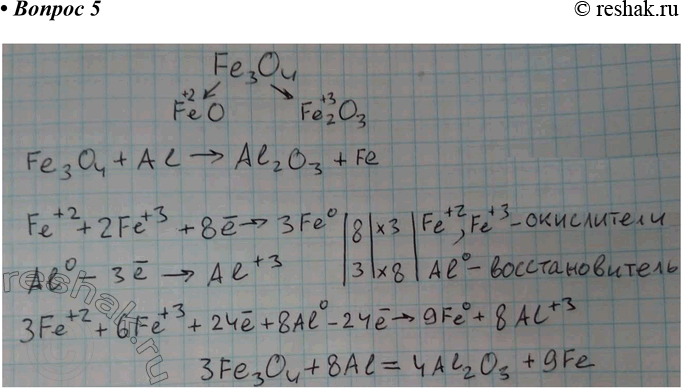 • Вопрос 5
© reshak.ru
Fe₃O₄
Fe⁺²O Fe₂⁺³O₃
Fe₃O₄ + Al → Al₂O₃ + Fe
Fe⁺² + 2Fe⁺³ + 8ē → 3Fe⁰ | 8 | ×3 | Fe⁺², Fe⁺³ - окислители
Al⁰ - 3ē → Al⁺³ | 3 | ×8 | Al⁰ - восстановитель
3Fe⁺² + 6Fe⁺³ + 24ē + 8Al⁰ - 24ē → 9Fe⁰ + 8Al⁺³
3Fe₃O₄ + 8Al = 4Al₂O₃ + 9Fe